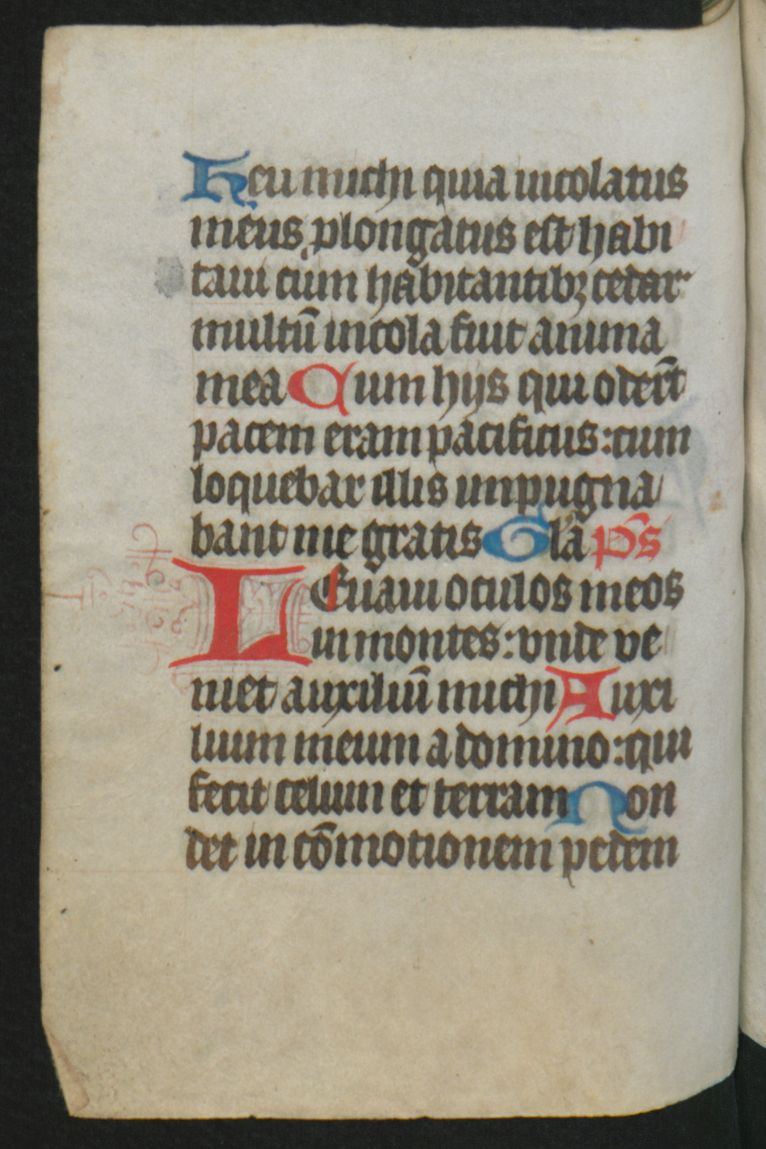 Heu michi quia incolatus
meus ꝓlongatus est habi
taui cum habitantibꝫ cedar
multū incola fuit anima
mea Cum hijs qui oderūt
pacem eram pacificus: cum
loquebar illis inpugna
bant me gratis Gl̄a p̄s
Leuaui oculos meos
in montes: vnde ve
niet auxiliū michi Auxi
lium meum a domino: qui
fecit celum et terram Non
det in cōmotionem pedem